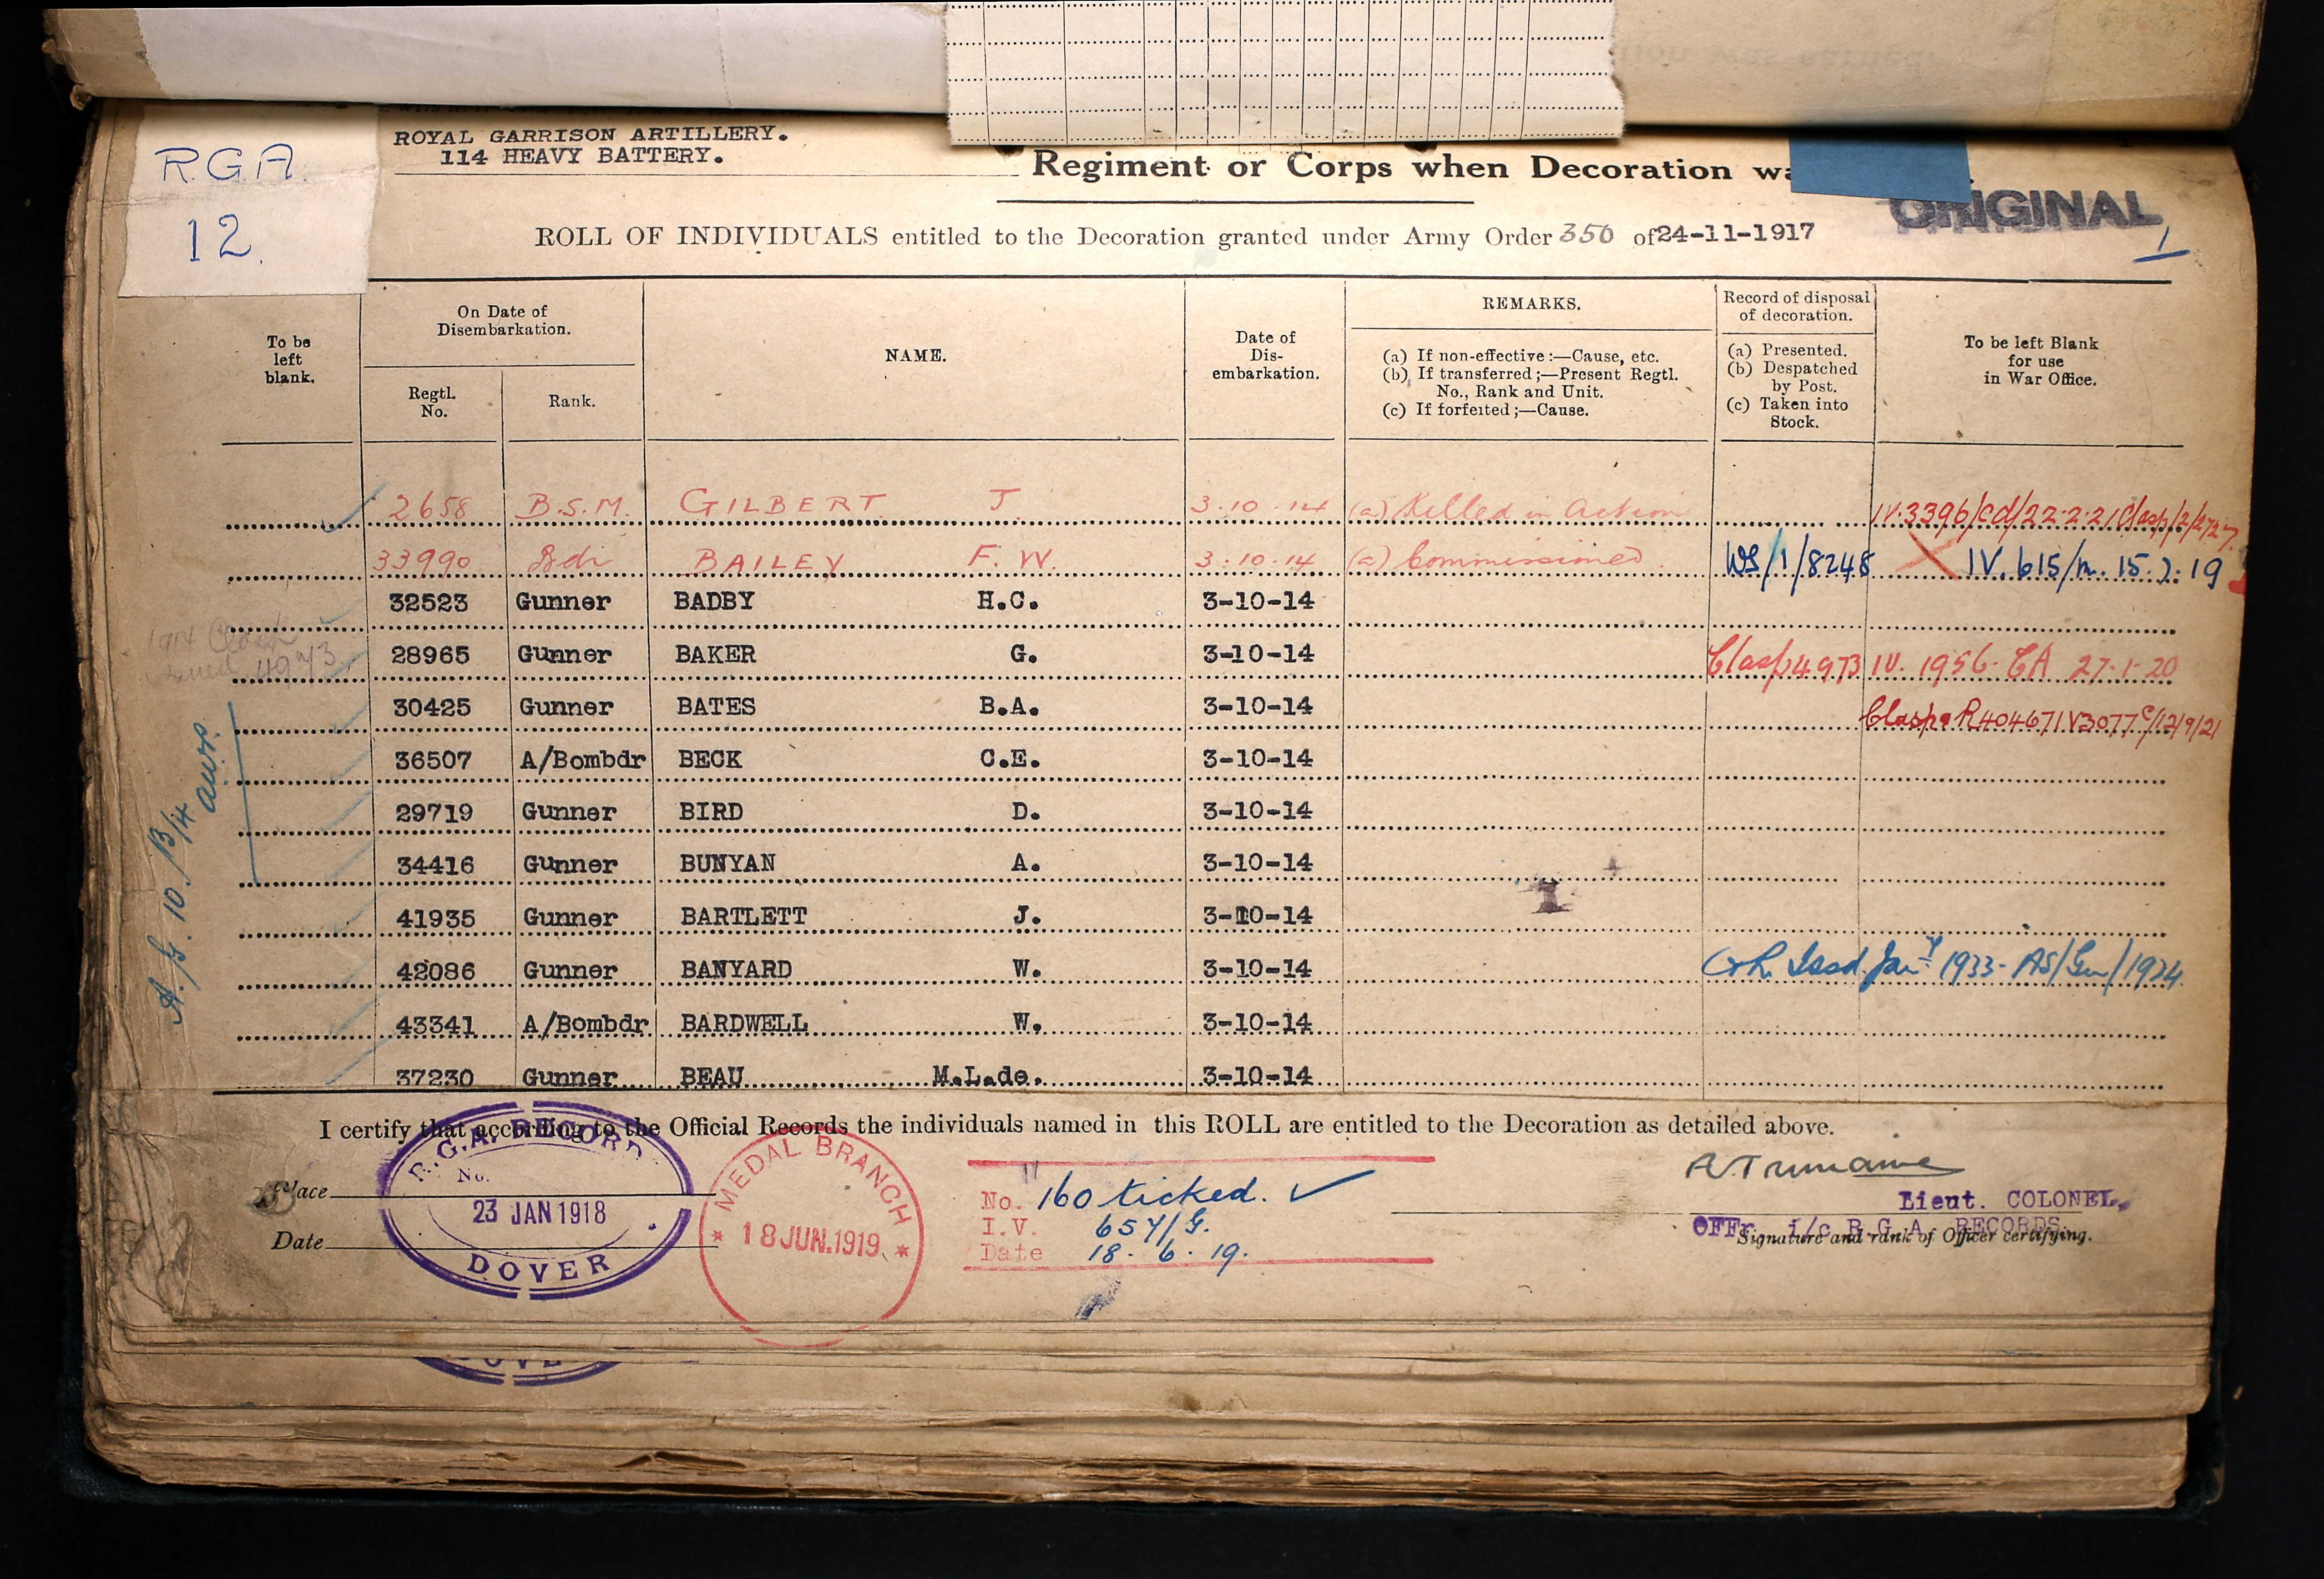 R.G.A.
12.
ROYAL GARRISON ARTILLERY.
114 HEAVY BATTERY.
Regiment or Corps when Decoration
ORIGINAL
1
ROLL OF INDIVIDUALS entitled to the Decoration granted under Army Order 350 of 24-11-1917
To be left blank.
On Date of Disembarkation.
Regtl. No.
Rank.
NAME.
Date of Dis-embarkation.
REMARKS.
(a) If non-effective :—Cause, etc.
(b) If transferred ;—Present Regtl. No., Rank and Unit.
(c) If forfeited ;—Cause.
Record of disposal of decoration.
(a) Presented.
(b) Despatched by Post.
(c) Taken into Stock.
To be left Blank for use in War Office.
2658 B.S.M. GILBERT J. 3.10.14 (a) Killed in Action IV.3396/
33990 Bdr BAILEY F. W. 3.10.14 (a) Commissioned WS/1/8248 IV. 615/
32523 Gunner BADBY H.C. 3-10-14
1914 Clasp
4973
28965 Gunner BAKER G. 3-10-14 Clasp 4973 IV. 1956. EA 27.1.20
30425 Gunner BATES B.A. 3-10-14
36507 A/Bombdr BECK C.E. 3-10-14
29719 Gunner BIRD D. 3-10-14
34416 Gunner BUNYAN A. 3-10-14
41935 Gunner BARTLETT J. 3-10-14
42086 Gunner BANYARD W. 3-10-14 Jany 1933. AS/Gen/1924
43341 A/Bombdr BARDWELL W. 3-10-14
37230 Gunner BEAU M.L.de. 3-10-14
I certify that according to the Official Records the individuals named in this ROLL are entitled to the Decoration as detailed above.
Place
Date
R.G.A. RECORD
No.
23 JAN 1918
DOVER
MEDAL BRANCH
18 JUN. 1919
No. 160 ticked.
I.V. 657/G.
Date 18. 6. 19.
Lieut. COLONEL,
OFFr. i/c R.G.A. RECORDS.
Signature and rank of Officer certifying.